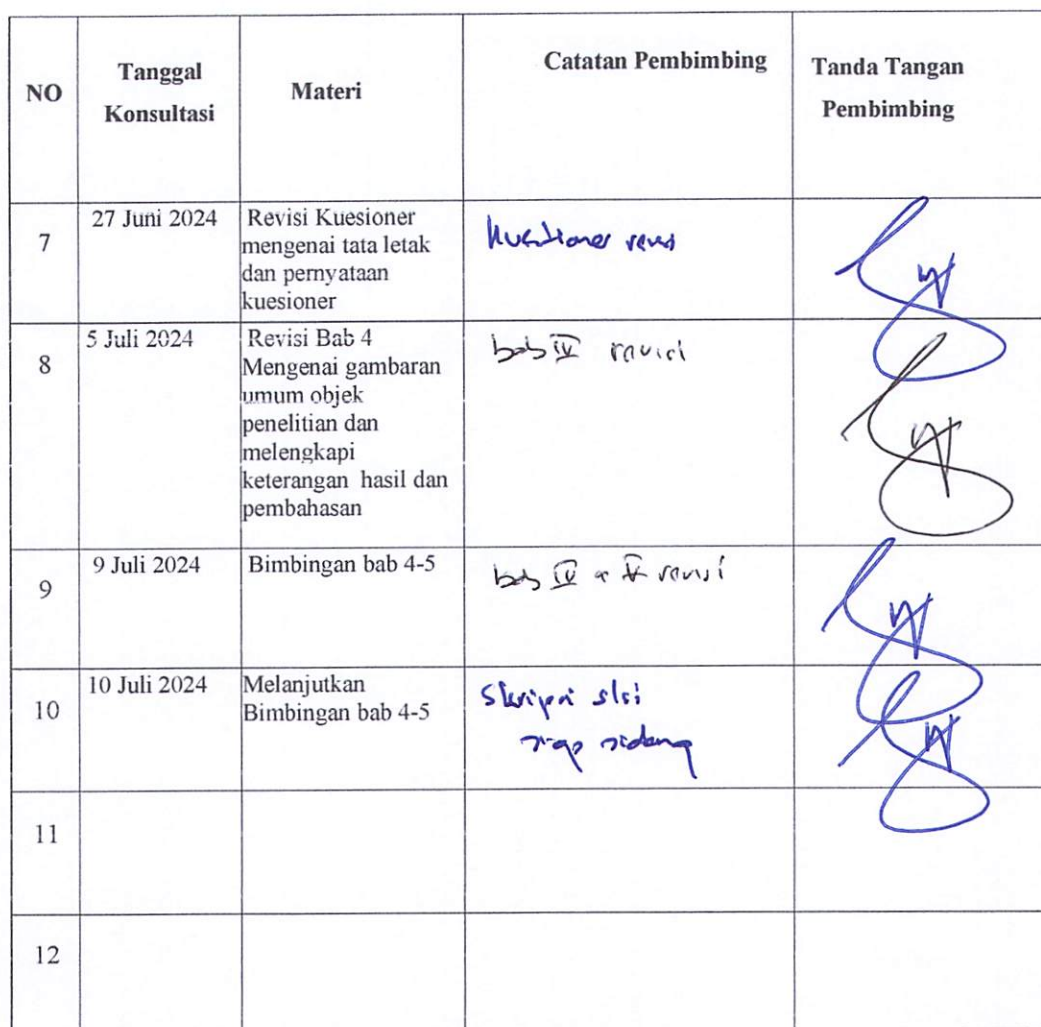 NO
Tanggal
Konsultasi
Materi
Catatan Pembimbing
Tanda Tangan
Pembimbing
7
27 Juni 2024
Revisi Kuesioner
mengenai tata letak
dan pernyataan
kuesioner
kuesioner revisi
8
5 Juli 2024
Revisi Bab 4
Mengenai gambaran
umum objek
penelitian dan
melengkapi
keterangan hasil dan
pembahasan
bab IV revisi
9
9 Juli 2024
Bimbingan bab 4-5
bab IV & V revisi
10
10 Juli 2024
Melanjutkan
Bimbingan bab 4-5
Skripsi slsi
siap sidang
11
12